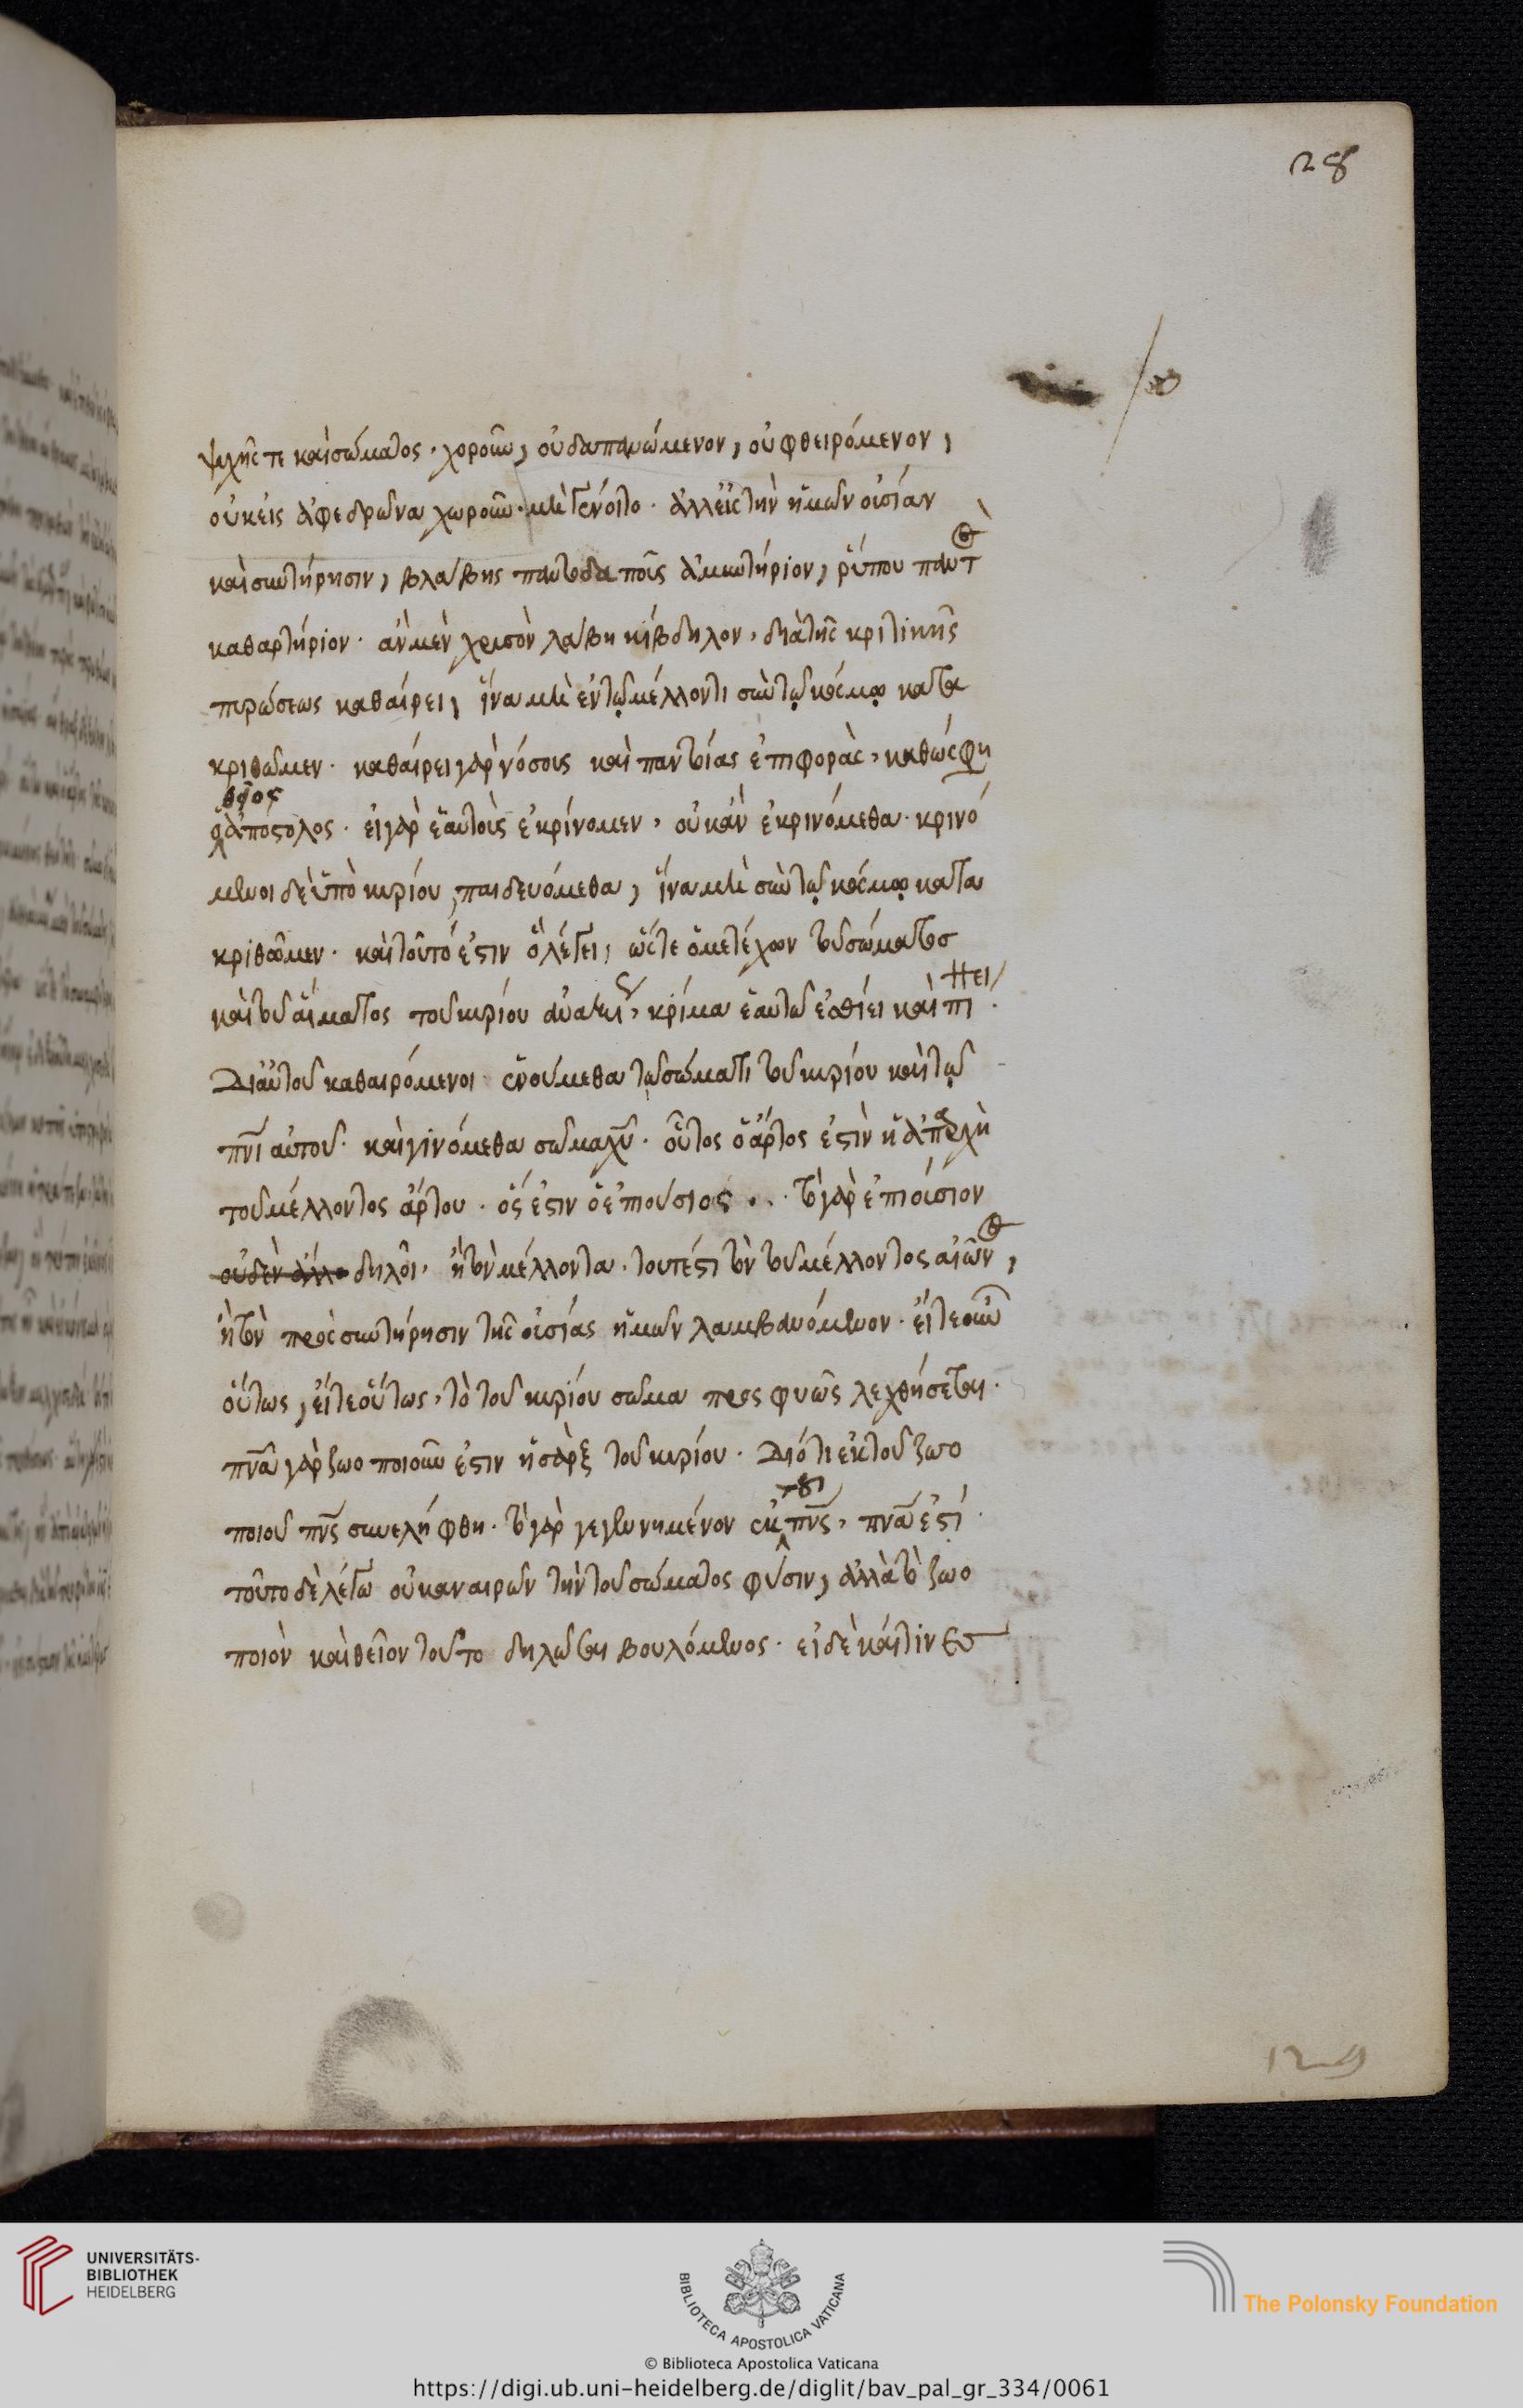 28
ψχῆς τε καὶ σώματος, χοροῦν, οὐ δαπανώμενον, οὐ φθειρόμενον,
οὐκ εἰς ἀφεδρῶνα χωροῦν· μὴ γένοιτο· ἀλλ εἰς τὴν ἡμῶν οὐσίαν
καὶ συντήρησιν, βλάβης παντοδαποῦς ἀμυντήριον, ῥύπου παντ
καθαρτήριον· ἂν μὲν χρυσὸν λάβη κίβδηλον, διὰ τῆς κριτικῆς
πυρώσεως καθαίρει, ἵνα μὴ ἐν τῷ μέλλοντι σὺν τῷ κόσμῳ κατα
κριθῶμεν· καθαίρει γὰρ νόσους καὶ παντοίας ἐπιφορὰς, καθώς φη
θεῖος
ὁ ἀπόστολος· εἰ γὰρ ἑαυτοὺς ἐκρίνομεν, οὐκ ἂν ἐκρινόμεθα· κρινό
μενοι δὲ ὑπὸ κυρίου, παιδευόμεθα, ἵνα μὴ σὺν τῷ κόσμῳ κατα
κριθῶμεν· καὶ τοῦτό ἐστιν ὃ λέγει, ὥστε ὁ μετέχων τοῦ σώματος
καὶ τοῦ αἵματος τοῦ κυρίου ἀναξίως, κρίμα ἑαυτῷ ἐσθίει καὶ πι
νει
Δι αὐτοῦ καθαιρόμενοι ἑνούμεθα τῷ σώματι τοῦ κυρίου καὶ τῷ
πνι αὐτοῦ· καὶ γινόμεθα σῶμα χυ· οὗτος ὁ ἄρτος ἐστὶν ἡ ἀπαρχὴ
τοῦ μέλλοντος ἄρτου· ὅς ἐστιν ὁ ἐπιούσιος . . . τὸ γὰρ ἐπιούσιον
οὐδὲν ἄλλο δηλοῖ, ἢ τὸν μέλλοντα, τουτέστι τὸν τοῦ μέλλοντος αἰῶν,
ἢ τὸν πρὸς συντήρησιν τῆς οὐσίας ἡμῶν λαμβανόμενον· εἴτε οὖν
οὕτως, εἴτε οὕτως, τὸ τοῦ κυρίου σῶμα προςφυῶς λεχθήσεται·
πνα γὰρ ζωοποιοῦν ἐστιν ἡ σὰρξ τοῦ κυρίου· Διότι ἐκ τοῦ ζωο
ποιοῦ πνς συνελήφθη· τὸ γὰρ γεγεννημένον ἐκ πνς, πνα ἐστί·
τοῦτο δὲ λέγω οὐκ αναιρῶν τὴν τοῦ σώματος φύσιν, ἀλλὰ τὸ ζωο
ποιὸν καὶ θεῖον τούτο δηλῶσαι βουλόμενος· εἰ δὲ καί τινες
129
UNIVERSITÄTS-
BIBLIOTHEK
HEIDELBERG
BIBLIOTECA APOSTOLICA VATICANA
The Polonsky Foundation
© Biblioteca Apostolica Vaticana
https://digi.ub.uni-heidelberg.de/diglit/bav_pal_gr_334/0061